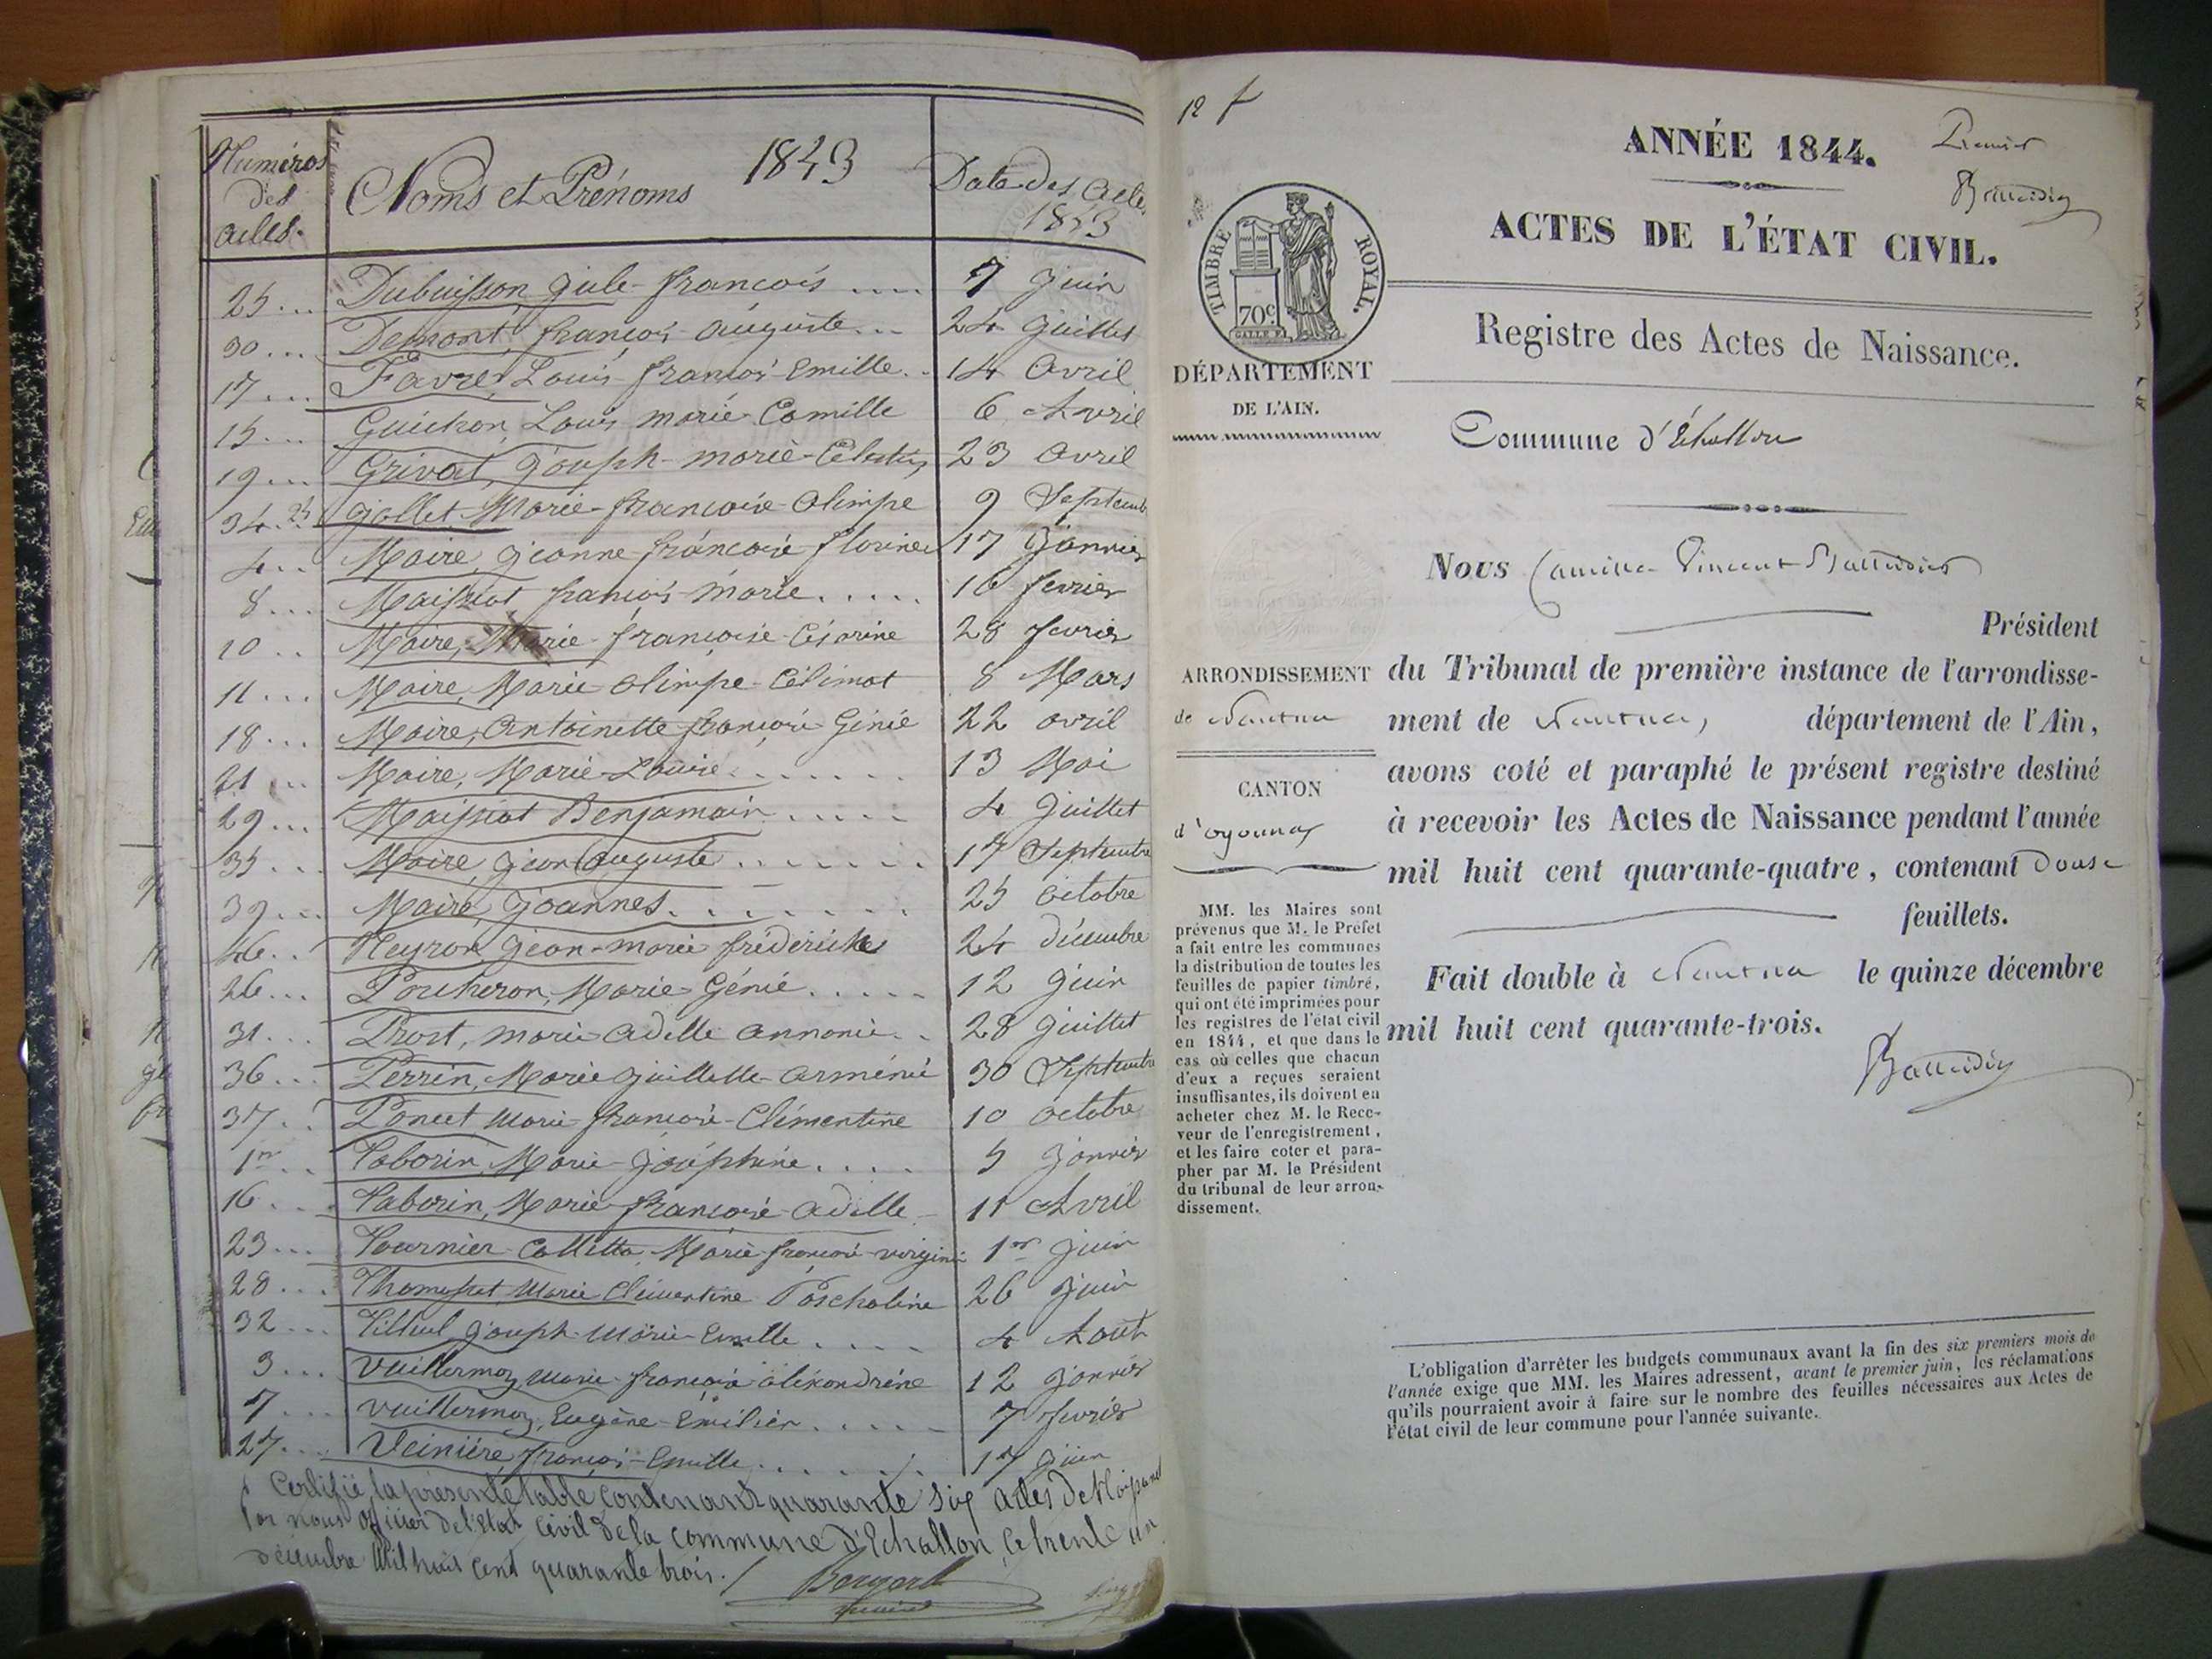 Numéros
des
actes.
Noms et Prénoms 1843
Date des actes
1843
25... Dubuisson Jule françois .... 7 Juin
30... Demont, françois auguste... 24 Juillet
17... Favre, Louis françois Emille.. 14 Avril
15... Guichon, Louis marie Camille 6 Avril
19... Grivat, Joseph marie 23 Avril
34... Jollet Marie françoise Olimpe 9 Septemb
4... Maire, Jeanne françoise 17 Janvier
8... Maissiat françois Marie..... 16 fevrier
10.. Maire, Marie françoise Césarine 28 fevrier
11... Maire, Marie Olimpe 8 Mars
18... Maire, Antoinette françoise Génie 22 avril
21... Maire, Marie Louise....... 13 Mai
29... Maissiat Benjamain..... 4 Juillet
35... Maire, Jean auguste....... 17 Septembre
39... Maire, Joannes........ 25 Octobre
46.. Neyron, Jean-marie 24 décembre
26... Poncheron, Marie Génie..... 12 Juin
31... Prost, marie adelle.. 28 Juillet
36... Perrin, Marie Juillette arménie 30 Septembre
37.. Poncet Marie françoise Clémentine 10 Octobre
1er.. Taborin, Marie Joséphine.... 5 Janvier
16... Taborin, Marie françoise adelle 11 Avril
23... Tournier Colletta, Marie françoise virginie 1er Juin
28... Thomasset Marie Clémentine Pascholine 26 Juin
32... Joseph Marie Emille.... 4 Aout
3... Vuillermoz, Marie françoise aléxandrine 12 Janvier
7... Vuillermoz, Eugène Emilien..... 7 fevrier
27... Veiniére, françois Emille....... 17 Juin
Certifié la présente table contenant quarante six actes de
Par nous officier de l'état civil de la commune d'Echallon, ce trente un
décembre Mil huit cent quarante trois.
12 f
ANNÉE 1844.
Premier
ACTES DE L'ÉTAT CIVIL.
TIMBRE ROYAL.
70c
Registre des Actes de Naissance.
DÉPARTEMENT
DE L'AIN.
Commune d'Echallon
Nous Camille Vincent
Président
ARRONDISSEMENT
de Nantua
CANTON
d'oyonnax
du Tribunal de première instance de l'arrondisse-
ment de Nantua, département de l'Ain,
avons coté et paraphé le présent registre destiné
à recevoir les Actes de Naissance pendant l'année
mil huit cent quarante-quatre, contenant douze
feuillets.
Fait double à Nantua le quinze décembre
mil huit cent quarante-trois.
MM. les Maires sont
prévenus que M. le Préfet
a fait entre les communes
la distribution de toutes les
feuilles de papier timbré,
qui ont été imprimées pour
les registres de l'état civil
en 1844, et que dans le
cas où celles que chacun
d'eux a reçues seraient
insuffisantes, ils doivent en
acheter chez M. le Rece-
veur de l'enregistrement,
et les faire coter et para-
pher par M. le Président
du tribunal de leur arron-
dissement.
L'obligation d'arrêter les budgets communaux avant la fin des six premiers mois de
l'année exige que MM. les Maires adressent, avant le premier juin, les réclamations
qu'ils pourraient avoir à faire sur le nombre des feuilles nécessaires aux Actes de
l'état civil de leur commune pour l'année suivante.